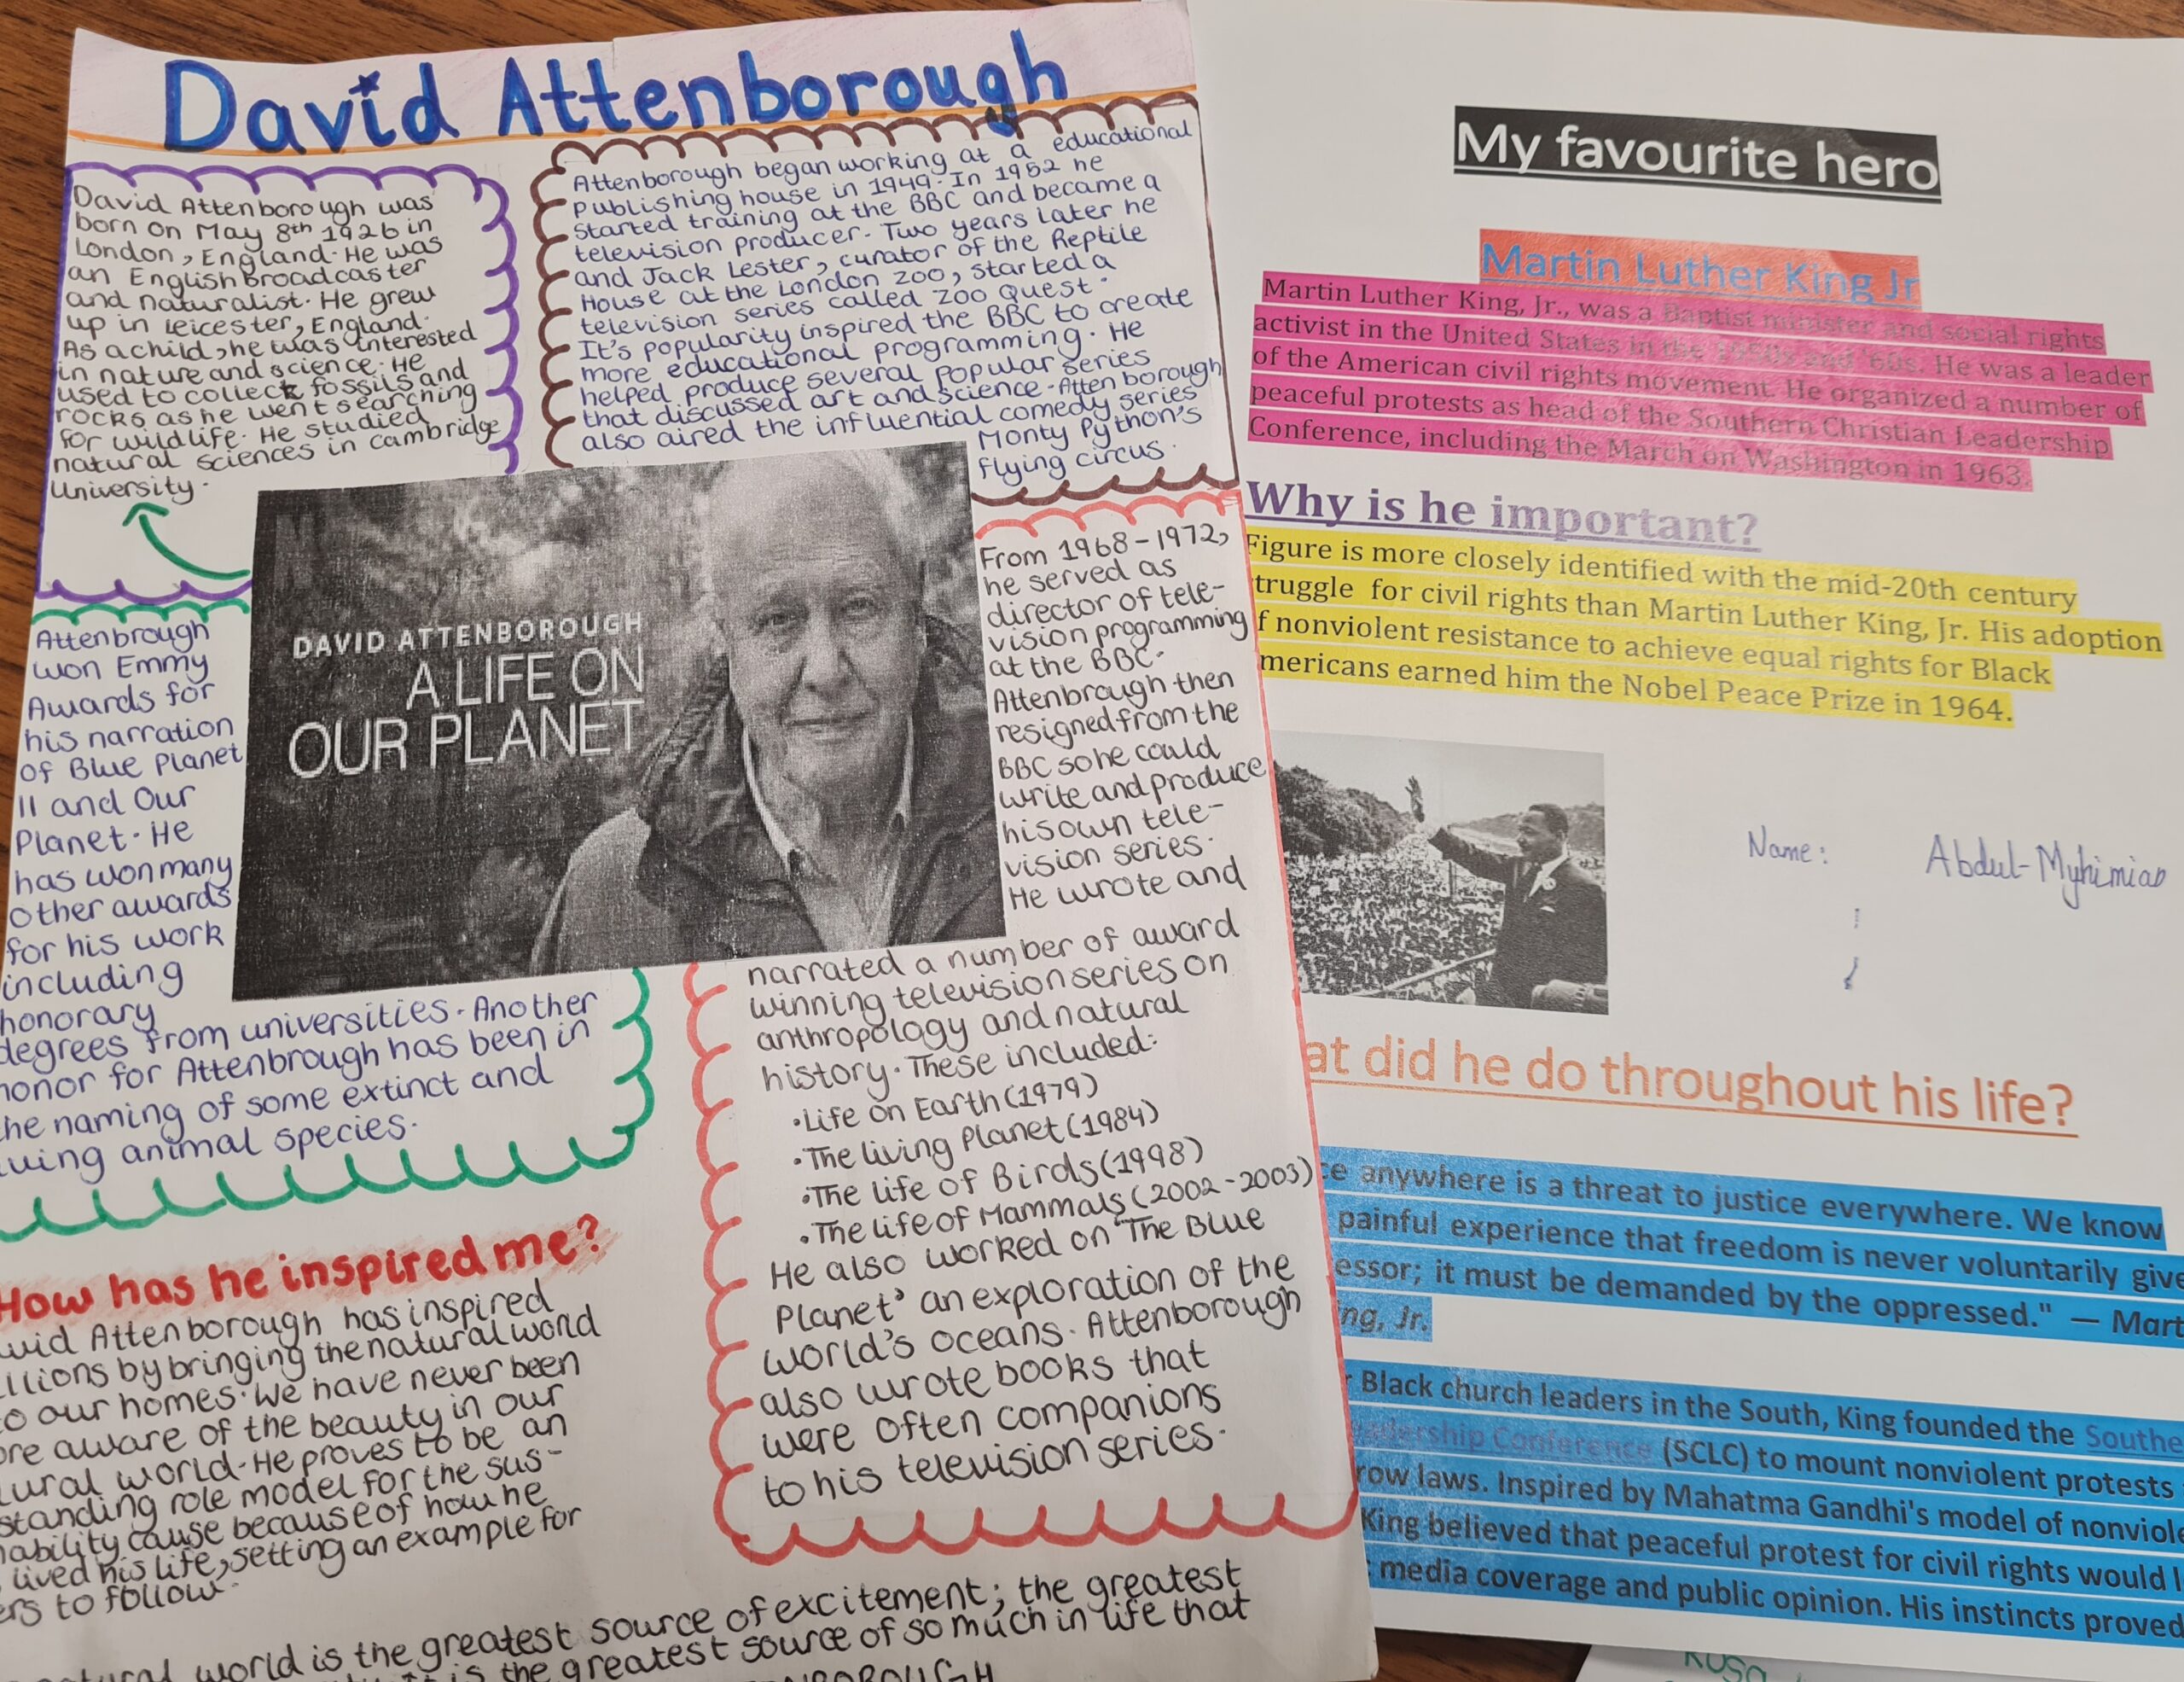 David Attenborough
David Attenborough was
born on May 8th 1926 in
London, England. He was
an English broadcaster
and naturalist. He grew
up in Leicester, England.
As a child, he was interested
in nature and science. He
used to collect fossils and
rocks as he went searching
for wildlife. He studied
natural sciences in Cambridge
University.
Attenborough began working at a educational
publishing house in 1949. In 1952 he
started training at the BBC and became a
television producer. Two years later he
and Jack Lester, curator of the Reptile
House at the London Zoo, started a
television series called Zoo Quest.
It's popularity inspired the BBC to create
more educational programming. He
helped produce several popular series
that discussed art and science. Attenborough
also aired the influential comedy series
Monty Python's
flying circus.
DAVID ATTENBOROUGH
A LIFE ON
OUR PLANET
From 1968-1972,
he served as
director of tele-
vision programming
at the BBC.
Attenbrough then
resigned from the
BBC so he could
write and produce
his own tele-
vision series.
He wrote and
narrated a number of award
winning television series on
anthropology and natural
history. These included:
•Life on Earth (1979)
•The living Planet (1984)
•The life of Birds (1998)
•The life of Mammals (2002-2003)
He also worked on 'The Blue
Planet' an exploration of the
world's oceans. Attenborough
also wrote books that
were often companions
to his television series.
Attenbrough
won Emmy
Awards for
his narration
of Blue Planet
II and Our
Planet. He
has won many
other awards
for his work
including
honorary
degrees from universities. Another
honor for Attenbrough has been in
the naming of some extinct and
living animal species.
How has he inspired me?
David Attenborough has inspired
millions by bringing the natural world
to our homes. We have never been
more aware of the beauty in our
natural world. He proves to be an
standing role model for the sus-
ability cause because of how he
lived his life, setting an example for
ers to follow.
natural world is the greatest source of excitement; the greatest
is the greatest source of so much in life that
ENBOROUGH
My favourite hero
Martin Luther King Jr
Martin Luther King, Jr., was a Baptist minister and social rights
activist in the United States in the 1950s and '60s. He was a leader
of the American civil rights movement. He organized a number of
peaceful protests as head of the Southern Christian Leadership
Conference, including the March on Washington in 1963.
Why is he important?
Figure is more closely identified with the mid-20th century
truggle for civil rights than Martin Luther King, Jr. His adoption
f nonviolent resistance to achieve equal rights for Black
mericans earned him the Nobel Peace Prize in 1964.
Name: Abdul-Myhimian
at did he do throughout his life?
ce anywhere is a threat to justice everywhere. We know
painful experience that freedom is never voluntarily give
essor; it must be demanded by the oppressed." — Mart
ng, Jr.
Black church leaders in the South, King founded the Southe
adership Conference (SCLC) to mount nonviolent protests
row laws. Inspired by Mahatma Gandhi's model of nonviole
King believed that peaceful protest for civil rights would l
media coverage and public opinion. His instincts proved
Rosa